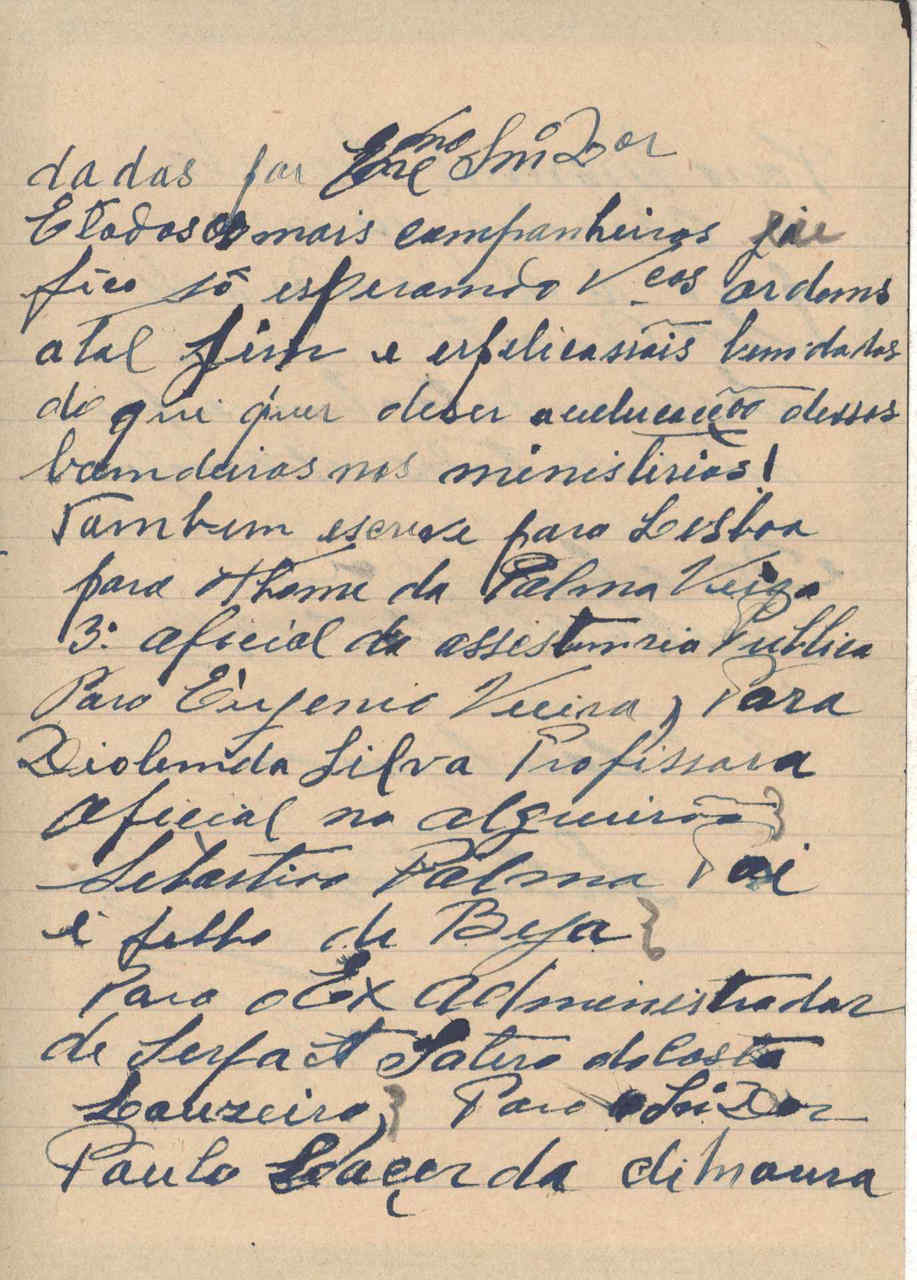 dadas por Exmo Snr Dor
E todos os mais companheiros
fico só esperamdo Vcas ordems
atal fim e expelicasõis bem datas
do que quer deser aculucação dessas
bamdeiras nos menistirios!
Tambem escreve para Lesboa
para Thome da Palma Veiga
3º aficial da assestemsia Publica
Para Eugenio Vieira, Para
Diolemda Silva Profissora
aficial no algueirão
Sebastião Palma Pai
e felho de Beja
Para o Ex Admenistrador
de Serpa A Satero da Costa
Lauzeiro, Para Snr Dor
Paulo Laçerda di Moura